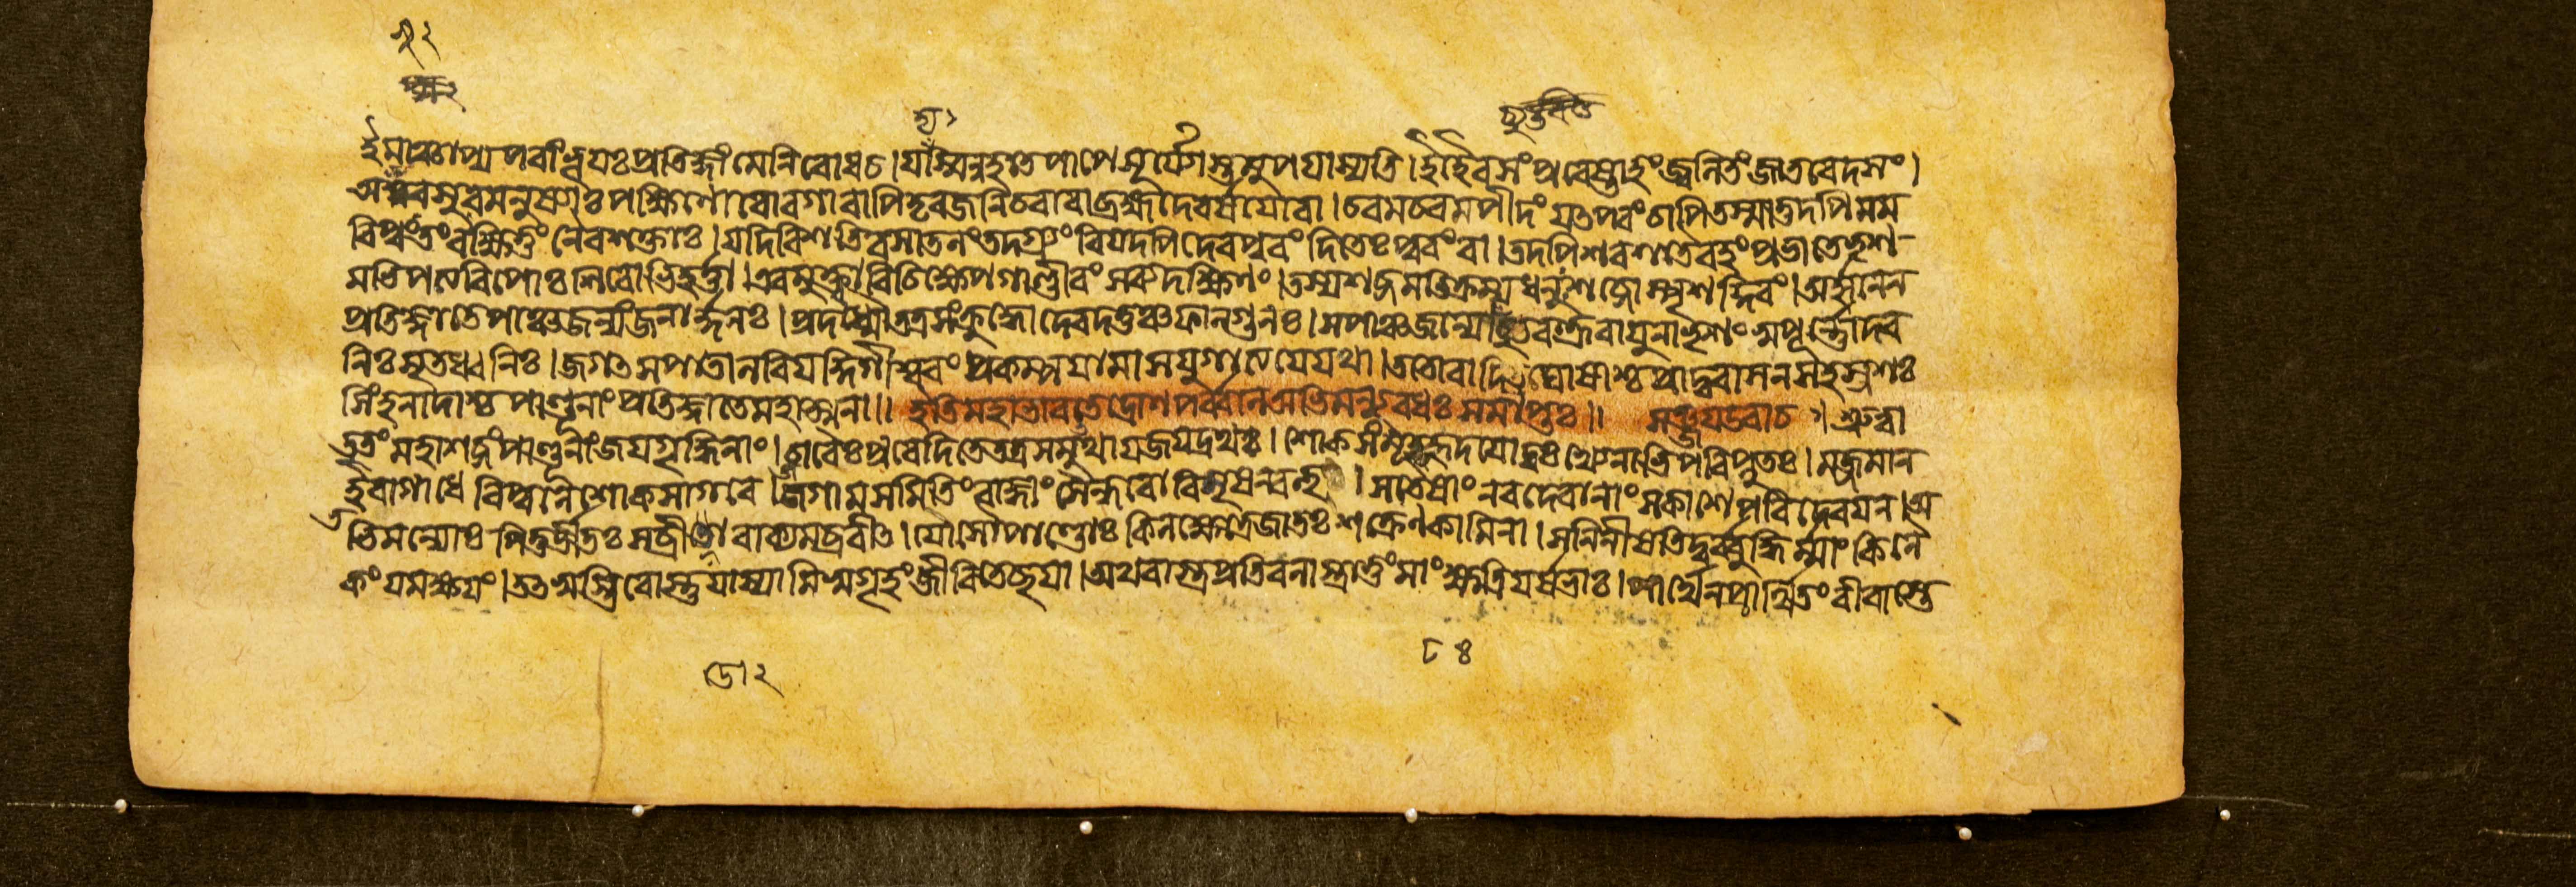 ইমাঞ্চাপ্যপরাং ভূয়ঃ প্রতিজ্ঞাং মে নিবোধত । যদ্যস্মিন্নহতে পাপে সূর্য্যোস্তমুপযাস্যতি । ইহৈব সংপ্রবেষ্টাহং জ্বলিতং জাতবেদসং ।
অসুরসুরমনুষ্যাঃ পক্ষিণো বোরগা বা পিতৃরজনিচরা বা ব্রহ্মদেবর্ষয়ো বা । চরমচরমপীদং যত্পরং চাপি তস্মাত্তদপি মম
রিপুং তং রক্ষিতুং নৈব শক্তাঃ । যদি বিশতি রসাতলং তদগ্র্যং বিয়দপি দেবপুরং দিতেঃ পুরং বা । তদপি শরশতৈরহং প্রভাতে ভৃশ
মভিপত্য রিপোঃ শিরোভিহর্ত্তা । এবমুক্ত্বা বিচিক্ষেপ গাণ্ডীবং সব্যদক্ষিণং । তস্য শব্দমতিক্রম্য ধনুঃশব্দোস্পৃশদ্দিবং । অর্জুনেন
প্রতিজ্ঞাতে পাঞ্চজন্যং জনার্দ্দনঃ । প্রদধ্মৌ তত্র সংক্রুদ্ধো দেবদত্তঞ্চ ফাল্গুনঃ । স পাঞ্চজন্যোচ্যুতবক্ত্রবায়ুনা ভৃশং সুপূর্ণোদর
নিঃসৃতধ্বনিঃ । জগত্ সপাতালবিয়দ্দিগীশ্বরং প্রকম্পয়ামাস যুগাত্যয়ে যথা । ততো বাদিত্রঘোষাশ্চ প্রাদুরাসন সহস্রশঃ
সিংহনাদাশ্চ পাণ্ডূনাং প্রতিজ্ঞাতে মহাত্মনা ॥ ইতি মহাভারতে দ্রোণপর্ব্বণি অভিমন্যুবধঃ সমাপ্তঃ ॥ সঞ্জয় উবাচ । শ্রুত্বা
তু তং মহাশব্দং পাণ্ডূনাং জয়গৃদ্ধিনাং । চারৈঃ প্রবেদিতে তত্র সমুত্থায় জয়দ্রথঃ । শোকসংমূঢ়হৃদয়ো দুঃখেনাভিপরিপ্লুতঃ । মজ্জমান
ইবাগাধে বিপুলে শোকসাগরে । জগাম সমিতিং রাজ্ঞাং সৈন্ধবো বিমৃষন্বহু । স তেষাং নরদেবানাং সকাশে পরিদেবয়ন । অ
ভিমন্যোঃ পিতুর্ভীতঃ সব্রীড়ো বাক্যমব্রবীত । যোসৌ পাণ্ডোঃ কিল ক্ষেত্রে জাতঃ শক্রেণ কামিনা । স নিনীষতি দুর্ব্বুদ্ধির্মাং কিলৈ
কং যমক্ষয়ং । তত্ স্বস্তি বোস্তু যাস্যামি স্বগৃহং জীবিতেচ্ছয়া । অথবাস্ত্রপ্রতিবলাস্ত্রাতুং মাং ক্ষত্রিয়র্ষভাঃ । পার্থেন প্রার্থিতং বীরাস্তে